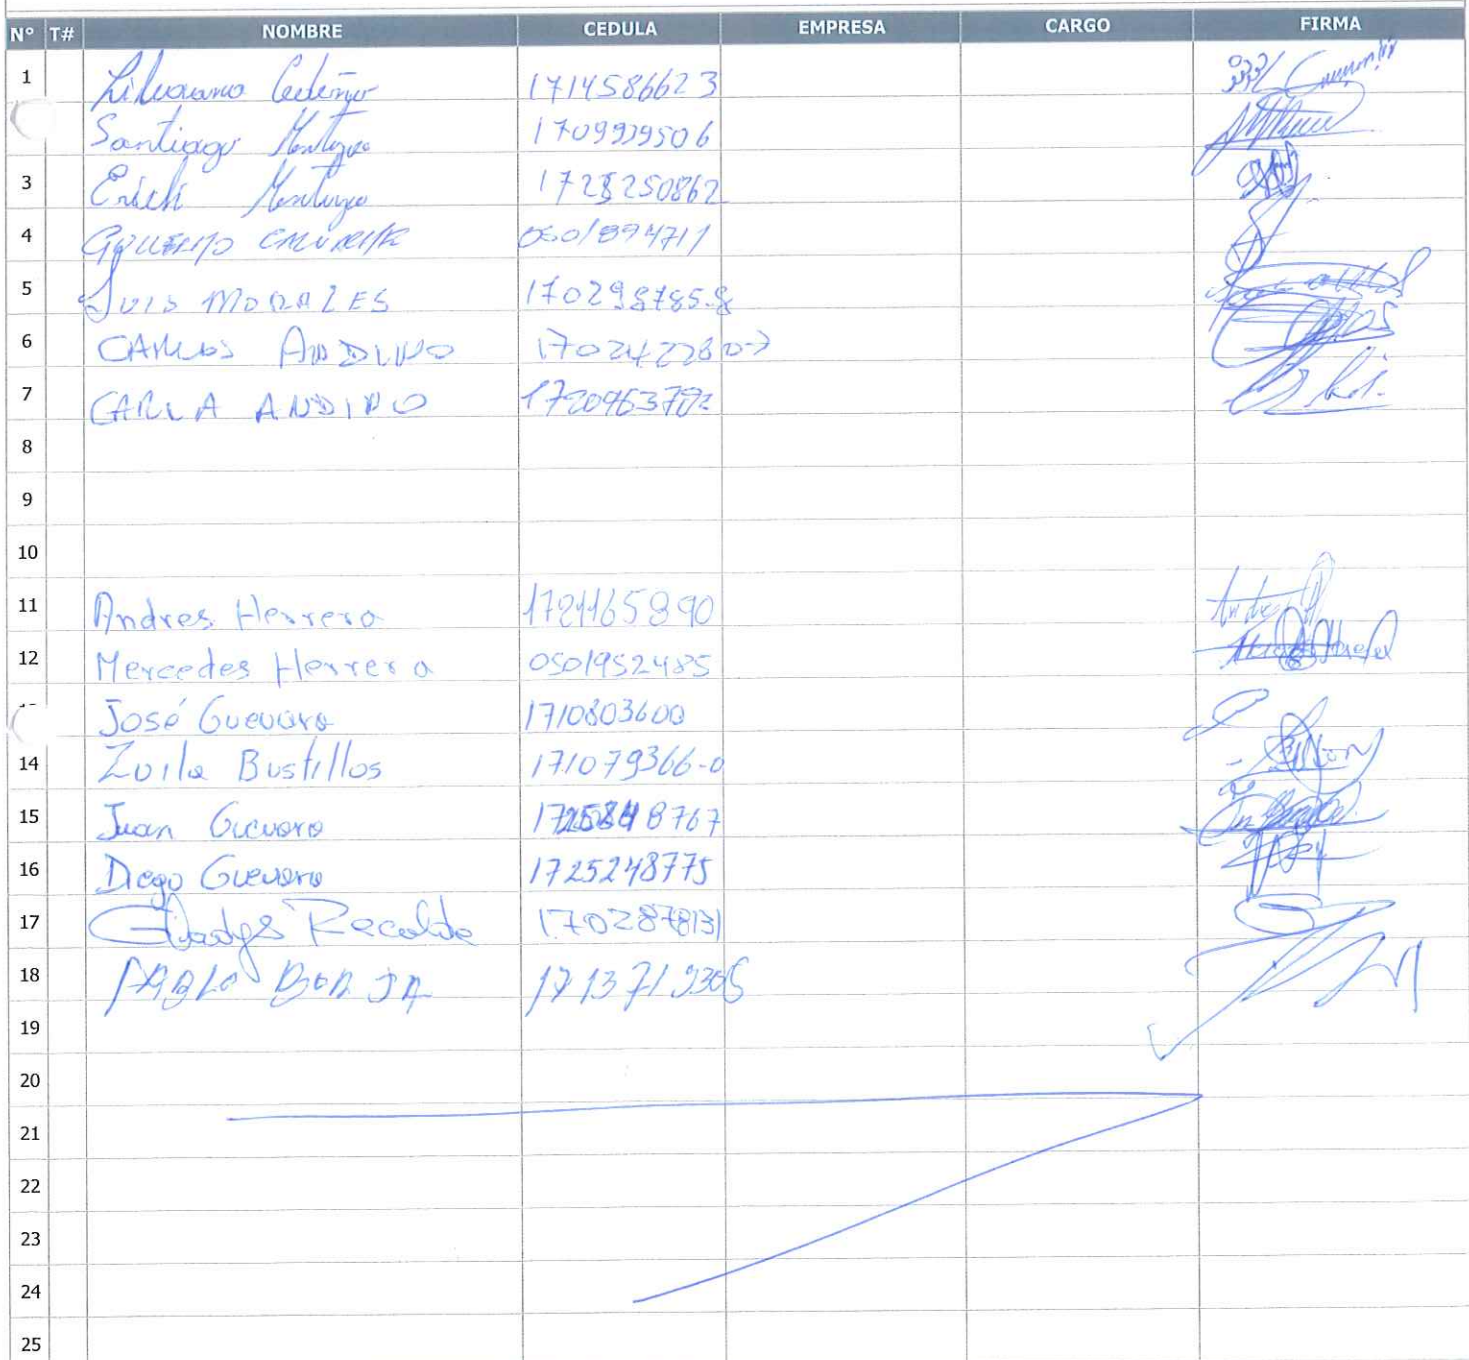 N° T# NOMBRE CEDULA EMPRESA CARGO FIRMA
1 Liliana Cedeño 1714586623
Santiago Montufar 1709999506
3 Erick 1725250862
4 GUILLERMO 0501894711
5 LUIS MORALES 170298785-8
6 CARLOS ANDINO 170242280-7
7 CARLA ANDINO
8
9
10
11 Andres Herrera 1721165890
12 Mercedes Herrera 0501952485
José Guevara 1710803600
14 Zoila Bustillos 171079366-0
15 Juan Guevara
16 Diego Guevara 1725248775
17 Gladys Recalde 1702878131
18 PABLO BORJA
19
20
21
22
23
24
25